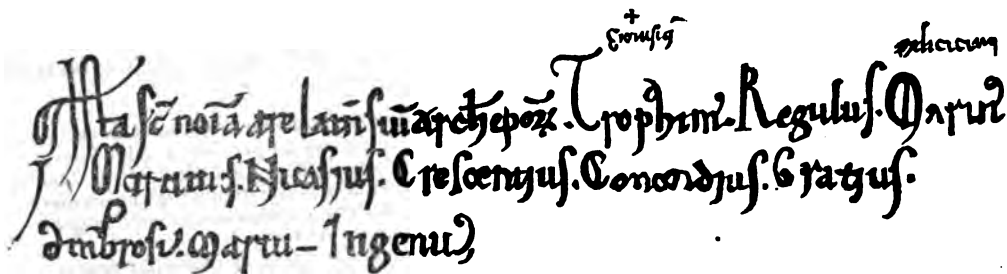 Ista sc̄ noīa arelatn̄siū arch̄epōꝝ. Trophim᾽. Regulus. Marin᾽
Martinus. Nicasius. Crescentius. Concordius. Gratius.
Ambrosi᾽. Martin᾽ Ingenu᾽